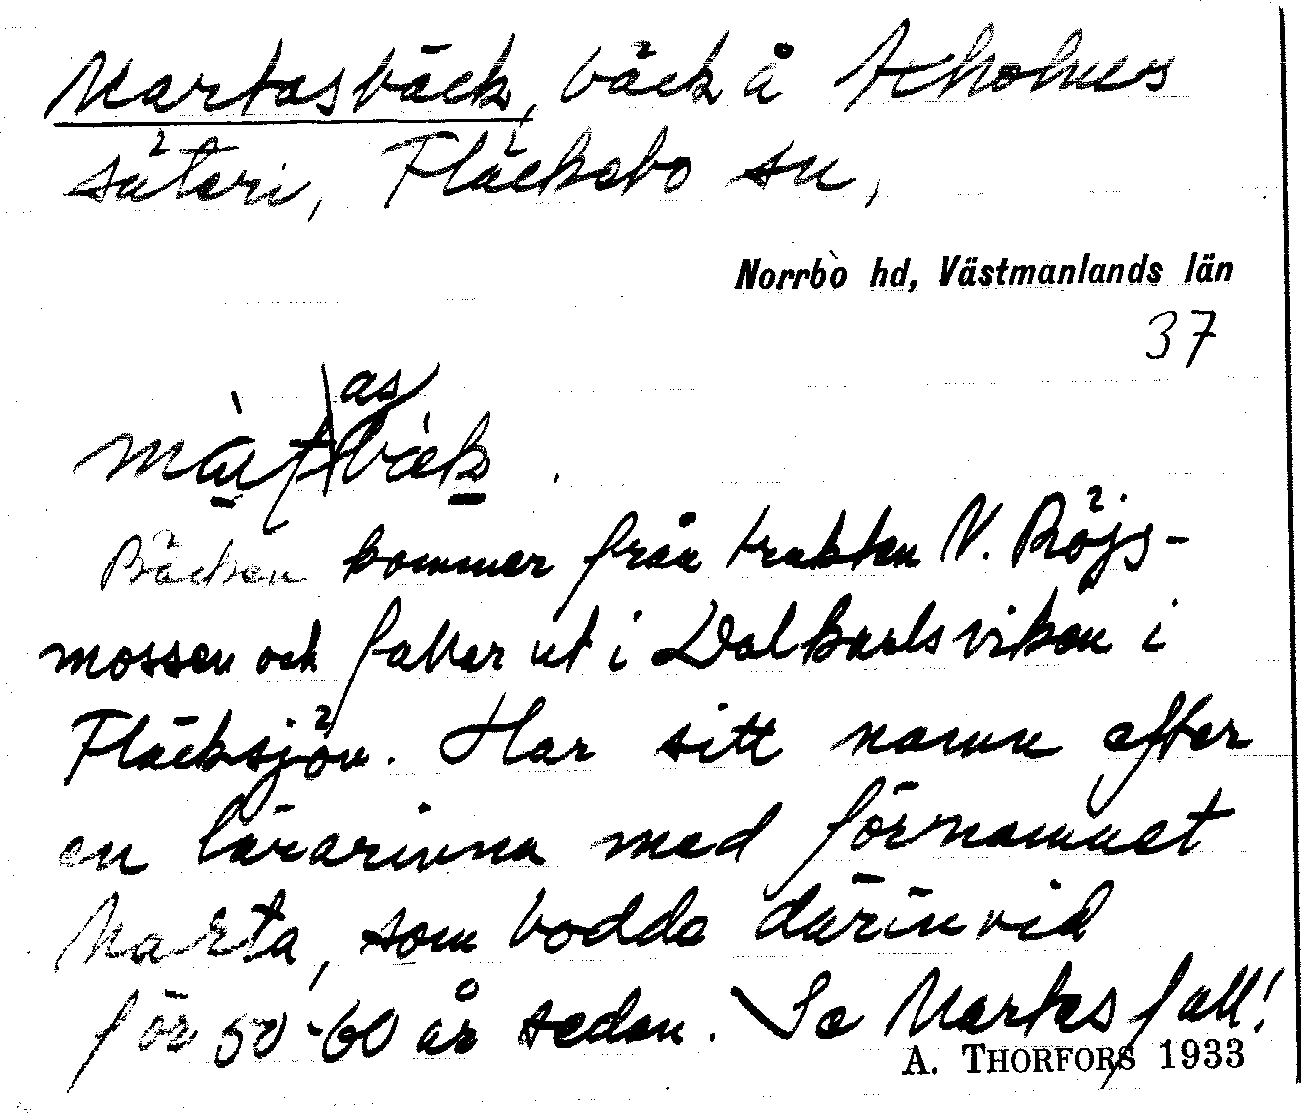 Martasbäck, bäck å Aholmes
säteri, Fläckebo sn,
Norrbo hd, Västmanlands län
37
as
bäk
Bäcken kommer från trakten N. Röjs-
mossen och faller ut i Dalkarlsviken i
Fläcksjön. Har sitt namn efter
en lärarinna med förnamnet
Marta, som bodde därinvid
för 50-60 år sedan. Se Martasfall!
A. THORFORS 1933